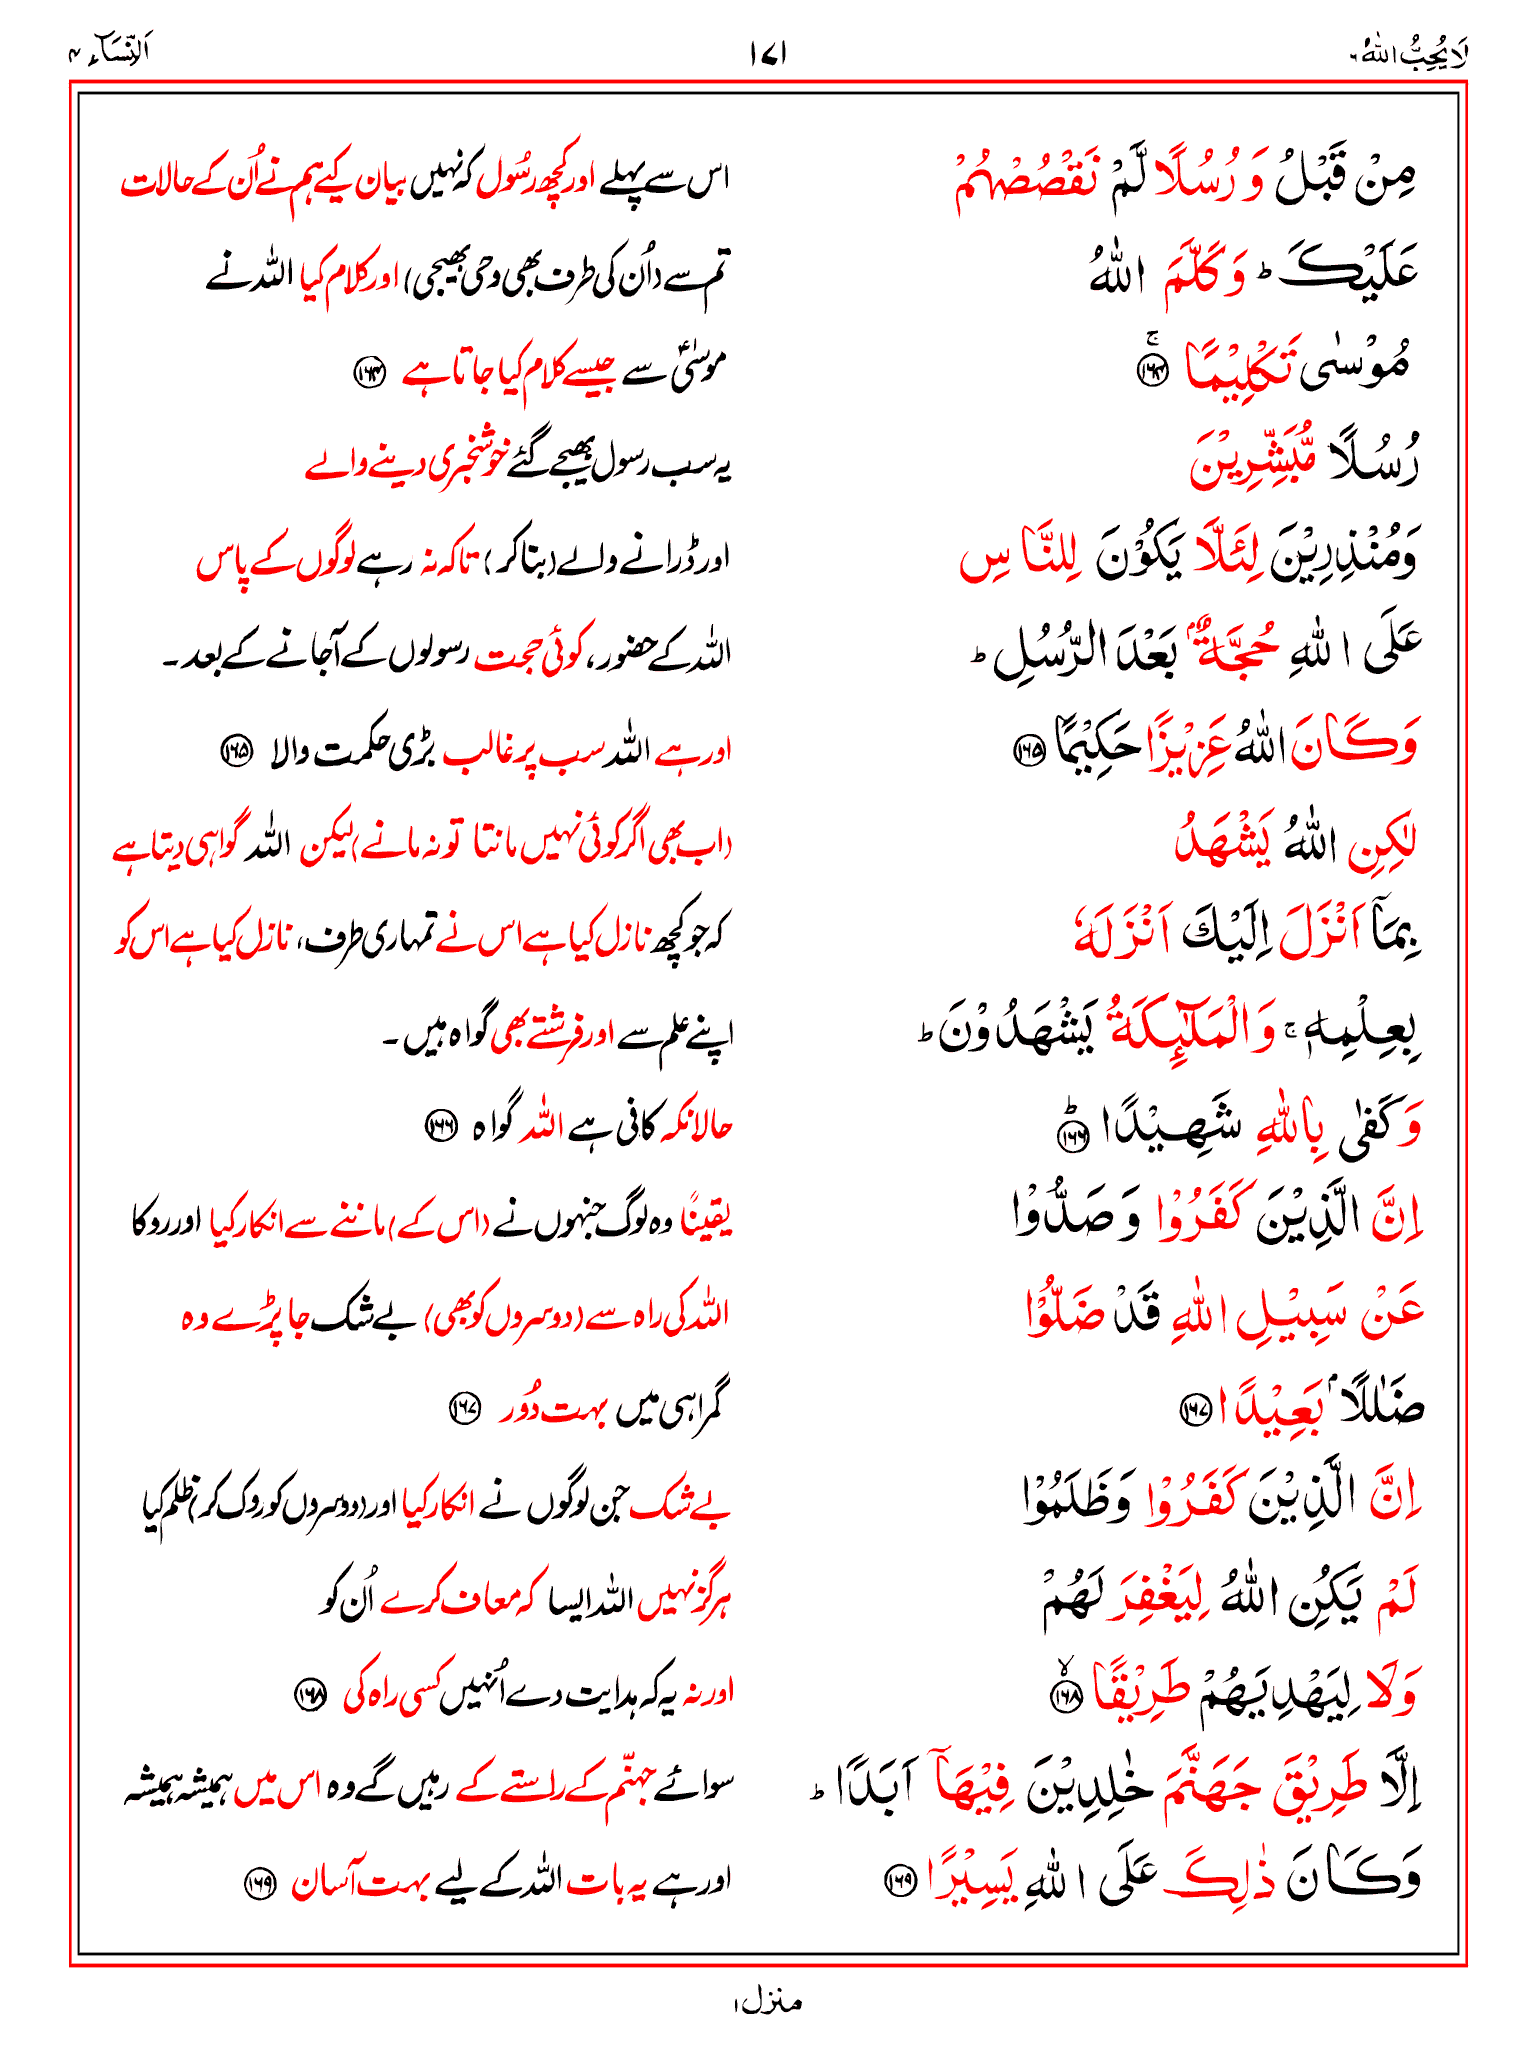 لَا يُحِبُّ اللهُ ۶
۱۷۱
اَلنِّسَآء ۴
مِنْ قَبْلُ وَ رُسُلًا لَّمْ نَقْصُصْهُمْ
اس سے پہلے اور کچھ رسُول کہ نہیں بیان کیے ہم نے اُن کے حالات
عَلَيْكَ ؕ وَ كَلَّمَ اللهُ
تم سے (اُن کی طرف بھی وحی بھیجی) اور کلام کیا اللہ نے
مُوْسٰى تَكْلِيْمًا ۚ ﴿۱۶۴﴾
موسٰیؑ سے جیسے کلام کیا جاتا ہے ﴿۱۶۴﴾
رُسُلًا مُّبَشِّرِيْنَ
یہ سب رسول بھیجے گئے خوشخبری دینے والے
وَمُنْذِرِيْنَ لِئَلَّا يَكُوْنَ لِلنَّاسِ
اور ڈرانے والے (بنا کر) تاکہ نہ رہے لوگوں کے پاس
عَلَى اللهِ حُجَّةٌۢ بَعْدَ الرُّسُلِ ؕ
اللہ کے حضور، کوئی حجت رسولوں کے آجانے کے بعد۔
وَكَانَ اللهُ عَزِيْزًا حَكِيْمًا ﴿۱۶۵﴾
اور ہے اللہ سب پر غالب بڑی حکمت والا ﴿۱۶۵﴾
لٰكِنِ اللهُ يَشْهَدُ
(اب بھی اگر کوئی نہیں مانتا تو نہ مانے) لیکن اللہ گواہی دیتا ہے
بِمَآ اَنْزَلَ اِلَيْكَ اَنْزَلَهٗ
کہ جو کچھ نازل کیا ہے اس نے تمہاری طرف، نازل کیا ہے اس کو
بِعِلْمِهٖ ۚ وَالْمَلٰٓئِكَةُ يَشْهَدُوْنَ ؕ
اپنے علم سے اور فرشتے بھی گواہ ہیں۔
وَ كَفٰى بِاللهِ شَهِيْدًا ؕ ﴿۱۶۶﴾
حالانکہ کافی ہے اللہ گواہ ﴿۱۶۶﴾
اِنَّ الَّذِيْنَ كَفَرُوْا وَ صَدُّوْا
یقینًا وہ لوگ جنہوں نے (اس کے) ماننے سے انکار کیا اور روکا
عَنْ سَبِيْلِ اللهِ قَدْ ضَلُّوْا
اللہ کی راہ سے (دوسروں کو بھی) بے شک جا پڑے وہ
ضَلٰلًاۢ بَعِيْدًا ﴿۱۶۷﴾
گمراہی میں بہت دُور ﴿۱۶۷﴾
اِنَّ الَّذِيْنَ كَفَرُوْا وَظَلَمُوْا
بے شک جن لوگوں نے انکار کیا اور (دوسروں کو روک کر) ظلم کیا
لَمْ يَكُنِ اللهُ لِيَغْفِرَ لَهُمْ
ہرگز نہیں اللہ ایسا کہ معاف کرے اُن کو
وَلَا لِيَهْدِيَهُمْ طَرِيْقًا ۙ ﴿۱۶۸﴾
اور نہ یہ کہ ہدایت دے اُنہیں کسی راہ کی ﴿۱۶۸﴾
اِلَّا طَرِيْقَ جَهَنَّمَ خٰلِدِيْنَ فِيْهَآ اَبَدًا ؕ
سوائے جہنّم کے راستے کے رہیں گے وہ اس میں ہمیشہ ہمیشہ
وَكَانَ ذٰلِكَ عَلَى اللهِ يَسِيْرًا ﴿۱۶۹﴾
اور ہے یہ بات اللہ کے لیے بہت آسان ﴿۱۶۹﴾
منزل ۱